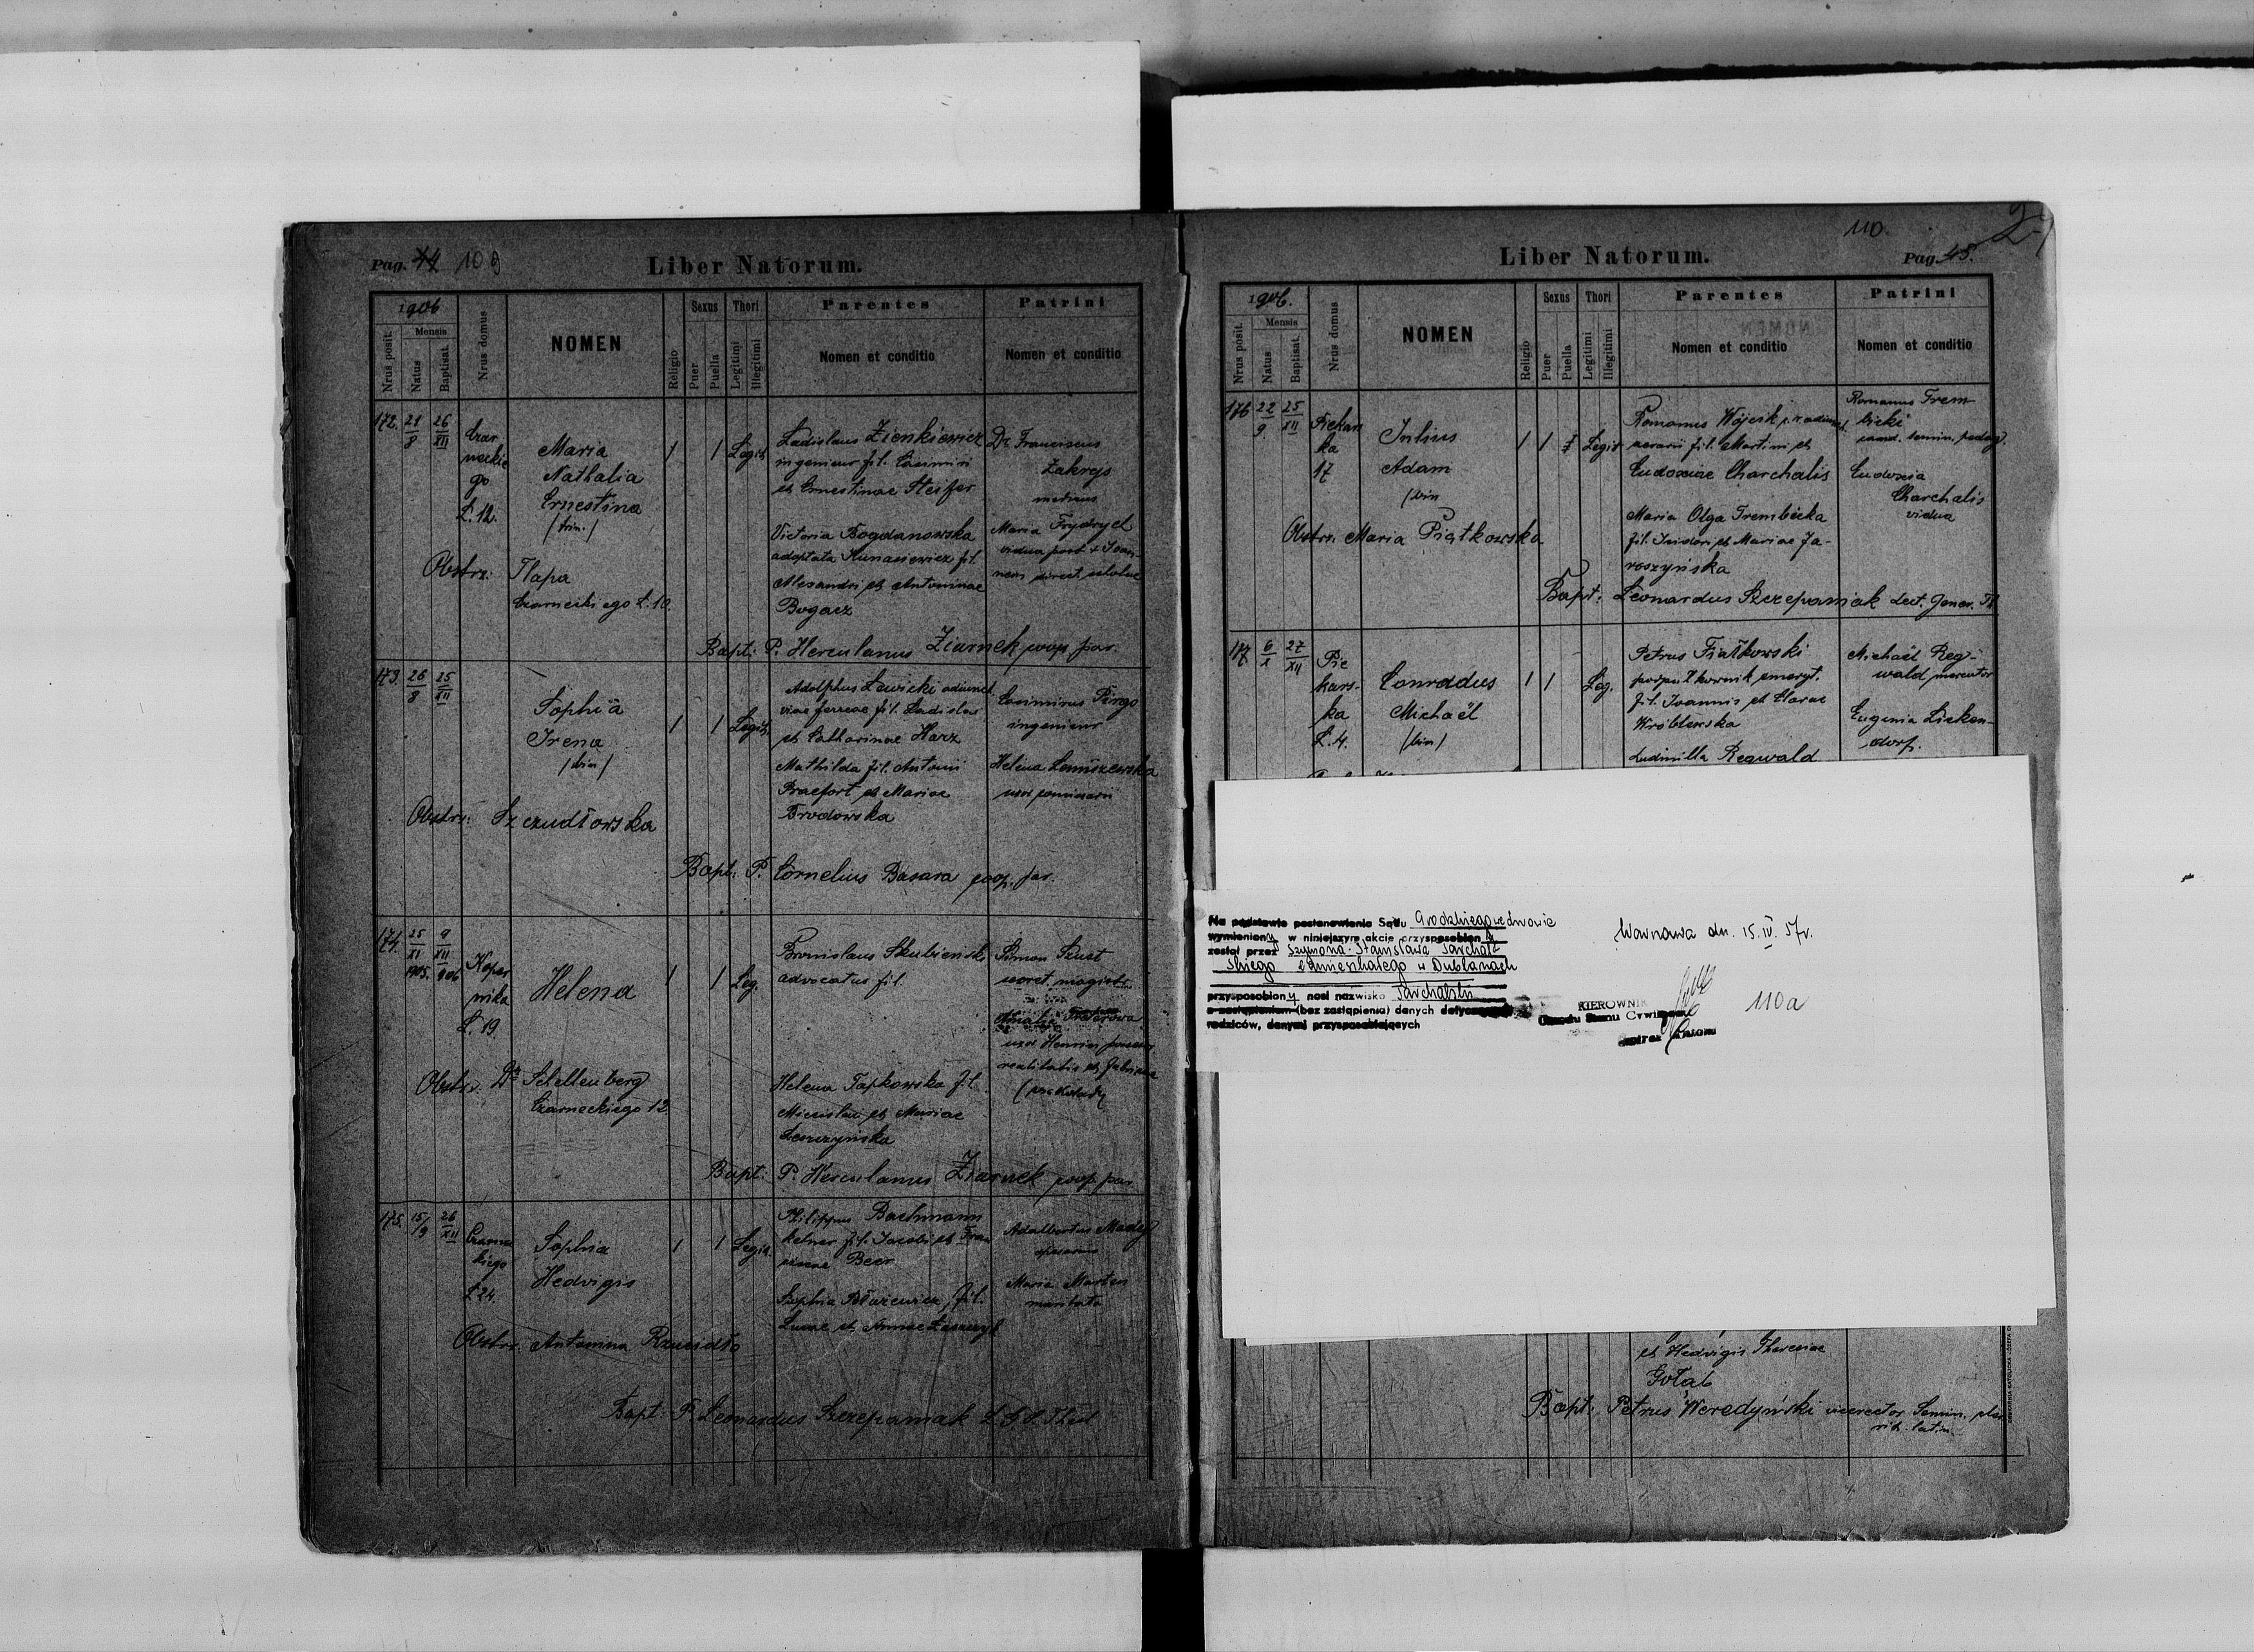 Pag. 44 109
Liber Natorum.
1906
Nrus posit.
Mensis
Natus
Baptisat.
Nrus domus
NOMEN
Religio
Sexus
Puer
Puella
Thori
Legitimi
Illegitimi
Parentes
Nomen et conditio
Patrini
Nomen et conditio
172. 21/8 26/XII
Czar
neckie
go
Ł. 12.
Maria
Nathalia
Ernestina
/trin./
1 1 Legit.
Ladislaus Zienkiewicz
ingenieur fil. Casimiri
et Ernestinae Steifer
Victoria Bogdanowska
adoptata Kunasiewicz fil.
Alexandri et Antoninae
Bogacz
Dr Franciscus
Zakrejs
medicus
Maria Frydrych
vidua post + Joan-
nem direct. scholae
Obstr: Tłapa
Czarneckiego Ł. 10.
Bapt: P. Herculanus Ziarnek coop. par.
173. 26/8 25/XII
Sophia
Irena
/bin/
1 1 Legit.
Adolphus Lewicki adiunct.
viae ferreae fil. Ladislai
et Catharinae Harz
Mathilda fil. Antonii
Praefort et Mariae
Brodowska
Casimirus Pirgo
ingenieur
Helena
uxor
Obstr: Szczudłowska
Bapt: P. Cornelius Basara coop. par.
174. 25/XI 1905. 9/XII 906
Koper
nika
Ł. 19.
Helena
1 1 Leg.
Bronislaus Skubieński
advocatus fil.
Helena Tapkowska fil.
Miecislai et Mariae
Leszczyńska
Simon Szust
secret. magistr.
Amalia
uxor Henrici
realitatis et fabricae
Obstr. Dr Schellenberg
Czarneckiego 12
Bapt: P. Herculanus Ziarnek coop. par.
175. 15/9 26/XII
Czarnec
kiego
Ł 24.
Sophia
Hedvigis
1 1 Legit.
Philippus Bachmann
kelner fil. Jacobi et Fran
ciscae Beer
Sophia Błażewicz, fil.
Lucae et Annae Łaszczyk
Adalbertus Madej
Maria Marten
maritata
Obstr: Antonina Rzucidło
Bapt: P. Leonardus Szczepaniak L. G. S. Theol
110.
Liber Natorum.
Pag. 45.
1906.
Nrus posit.
Mensis
Natus
Baptisat.
Nrus domus
NOMEN
Religio
Sexus
Puer
Puella
Thori
Legitimi
Illegitimi
Parentes
Nomen et conditio
Patrini
Nomen et conditio
176 22/9 25/XII
Piekars
ka
17
Julius
Adam
/bin
1 1 Legit
Romanus Wójcik adiunct.
aerarii fil. Martini et
Eudoxiae Charchalis
Maria Olga Trembicka
fil. Isidori et Mariae Ja-
roszyńska
Romanus Trem
bicki
cand. semin. pedag.
Eudoxia
Charchalis
vidua
Obstr: Maria Piątkowska
Bapt: Leonardus Szczepaniak Lect. Gener. Th
177 6/X 27/XII
Pie
kars-
ka
Ł. 4.
Conradus
Michaël
/bin/
1 1 Leg.
Petrus Fiałkowski
podpułkownik emeryt.
fil. Joannis et Clarae
Wróblewska
Ludmilla Regwald
Michaël Reg-
wald mercator
Eugenia Liken-
dorf.
Na podstawie postanowienia Sądu Grodzkiego we Lwowie
wymieniony w niniejszym akcie przysposobiony
został przez Szymona-Stanisława Parchal
skiego zamieszkałego w Dublanach
przysposobiony nosi nazwisko Parchalski
z zastąpieniem (bez zastąpienia) danych dotyczących
rodziców, danymi przysposabiających
Warszawa dn. 15.IV.57r.
KIEROWNIK
Urzędu Stanu Cywilnego
110a
et Hedvigis Theresiae
Gołąb
Bapt: Petrus Weredyński vicerector Semin.
rit. latin.